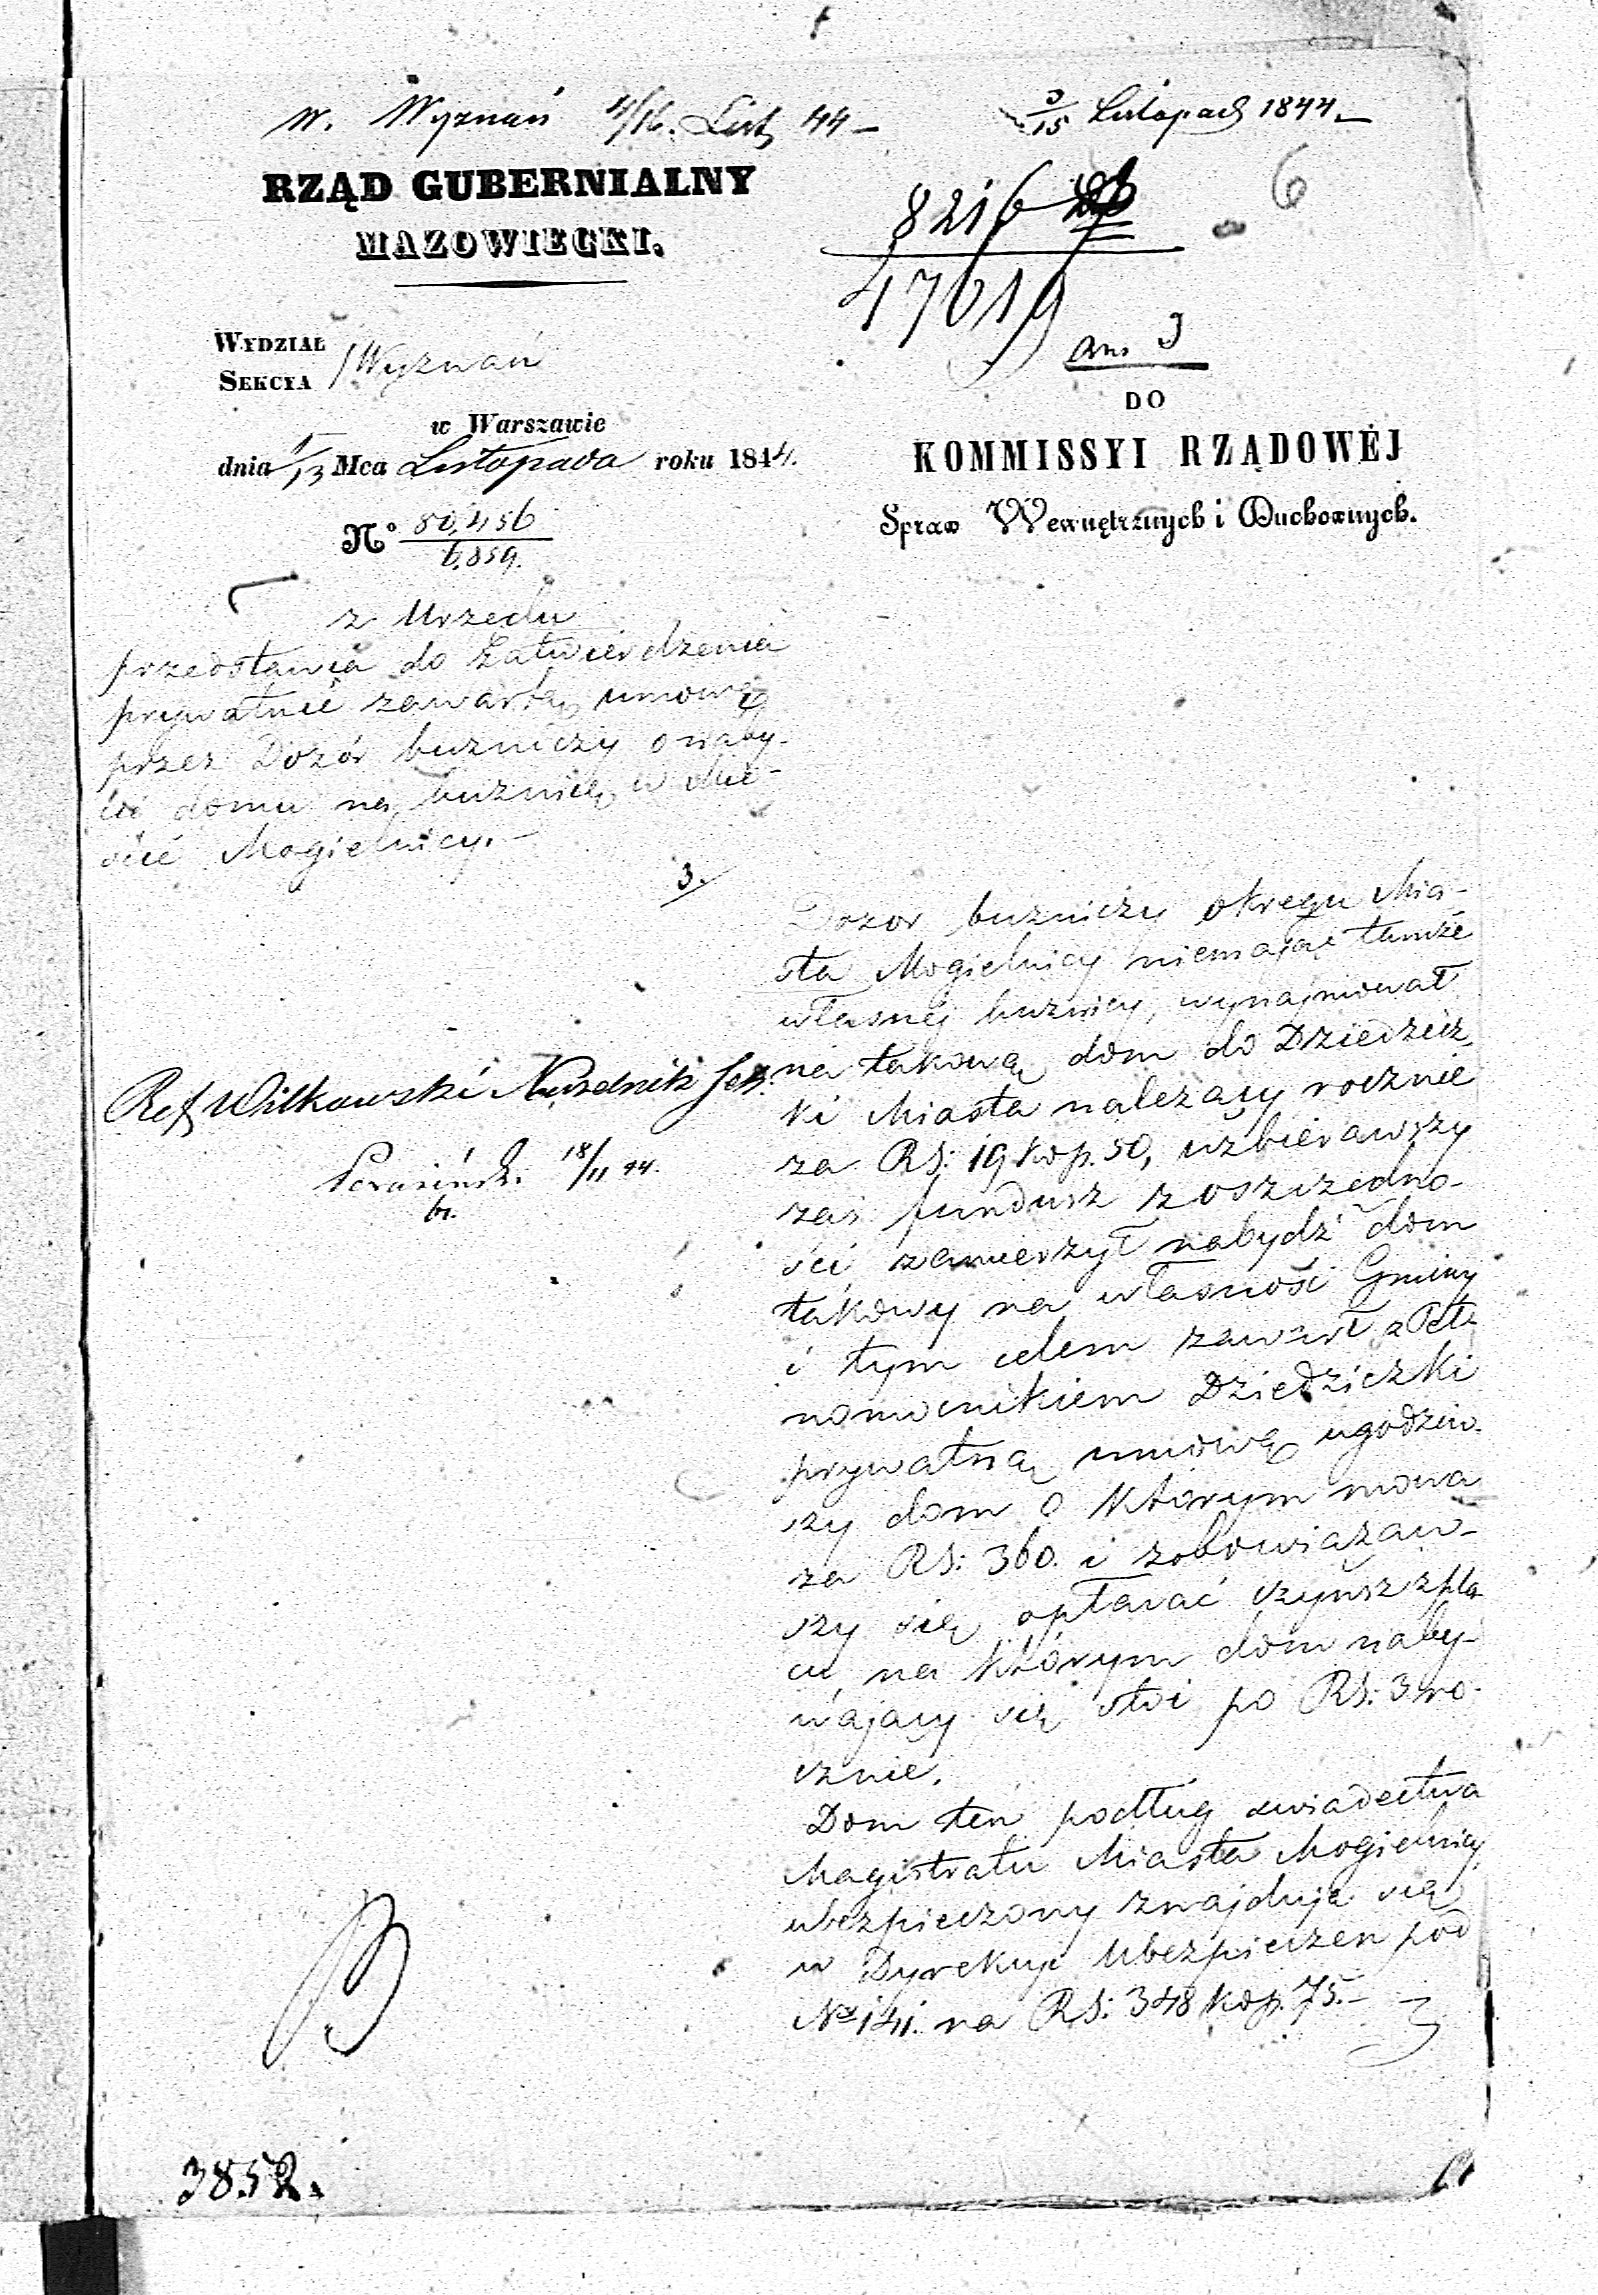 W. Wyznań 4/16. List. 44 –
3/15 Listopad 1844. –
6
RZĄD GUBERNIALNY
MAZOWIECKI.
8216
47619
WYDZIAŁ
SEKCYA
Wyznań
ann. J
w Warszawie
dnia 1/13 Mca Listopada roku 1844.
No 80,456
6.859.
DO
KOMMISSYI RZĄDOWÉJ
Spraw Wewnętrznych i Duchownych.
z Urzędu
przedstawia do Zatwierdzenia
prywatnie zawartą umowę
przez Dozór buzniczy o naby-
cie domu na buznicę w Mie-
ście Mogielnicy. –
3.
Dozor buzniczy okręgu Mia-
sta Mogielnicy niemając tamże
własnéj buznicy, wynajmował
na takową dom do Dziedzicz
ki Miasta należący rocznie
za RS: 19 kop. 50, uzbierawszy
zaś fundusz z oszczędno-
ści zamierzył nabydź dom
takowy na własność Gminy
i tym celem zawarł z Peł-
nomocnikiem Dziedziczki
prywatną umowę ugodziw-
szy dom o którym mowa
za RS: 360. i zobowiązaw-
szy się opłacać czynsz z pla-
cu, na którym dom naby-
wający się stoi po RS: 3 ro-
cznie.
Dom ten podług świadectwa
Magistratu Miasta Mogielnicy
ubezpieczony znajduje się
w Dyrekcyi Ubezpieczen pod
No 141. na RS: 348 kop. 75. –
Ref Wilkowski Naczelnik Sek.
18/11 44.
3852.